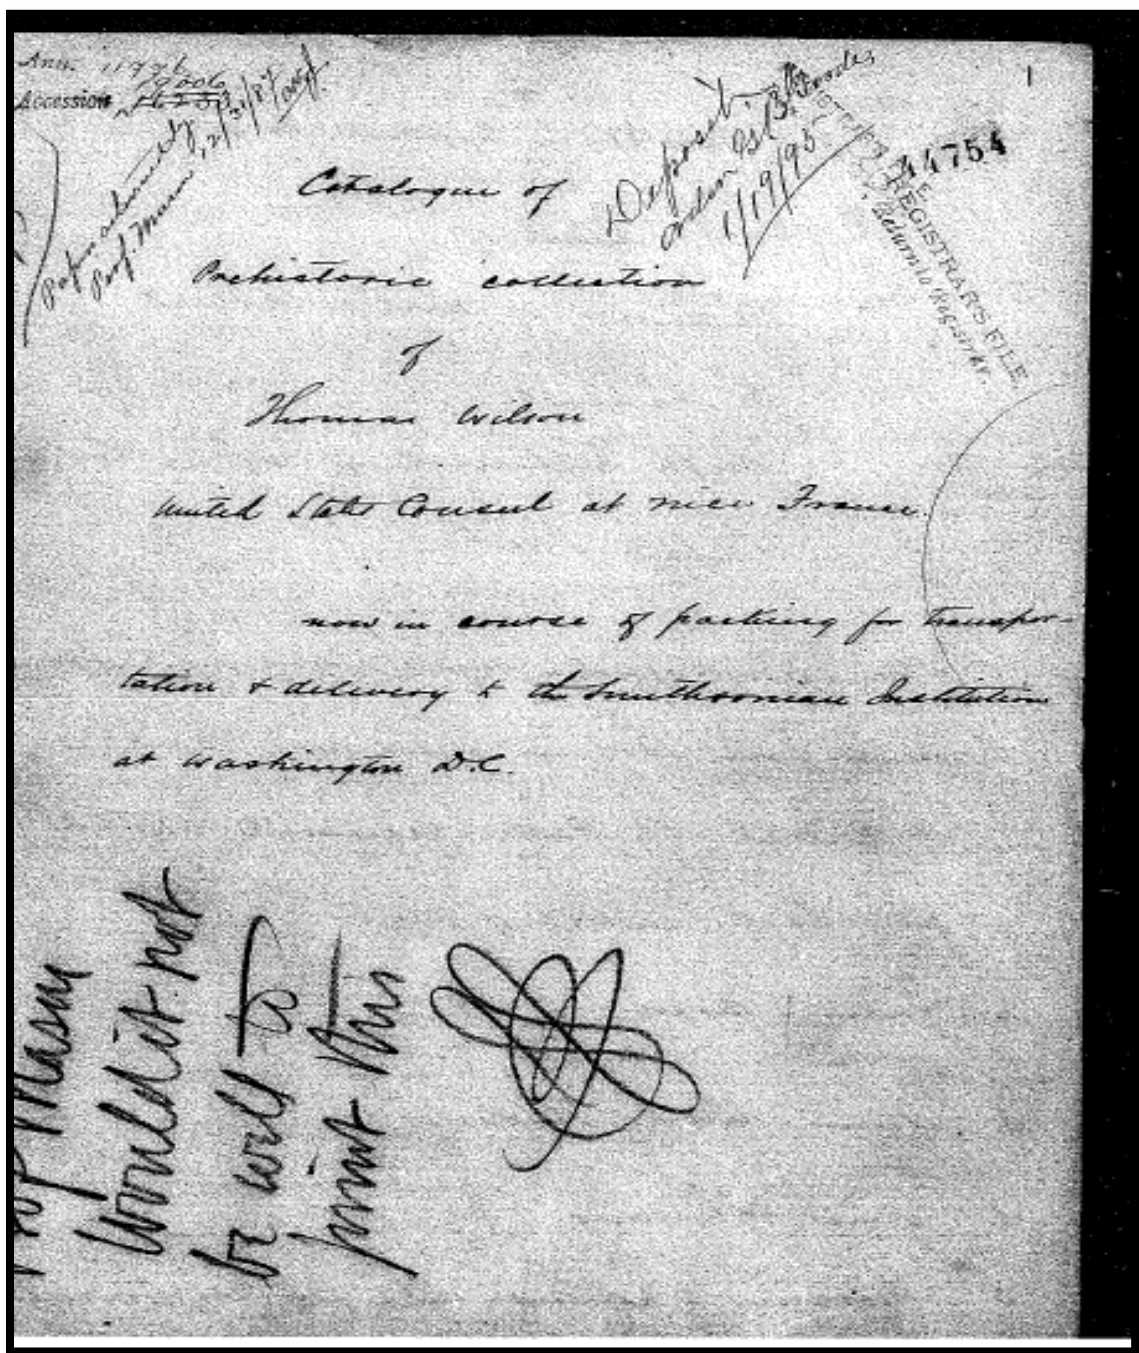 1
Accession
44754
Deposit
1/19/95
REGISTRAR'S FILE
Return to Registrar.
Prof. 12/31/87
Catalogue of
Prehistoric collection
of
Thomas Wilson
United State Consul at Nice France.
now in course of packing for transpor-
tation & delivery to the Smithsonian Institution
at Washington D.C.
Prof Mason
Would it not
be well to
print this